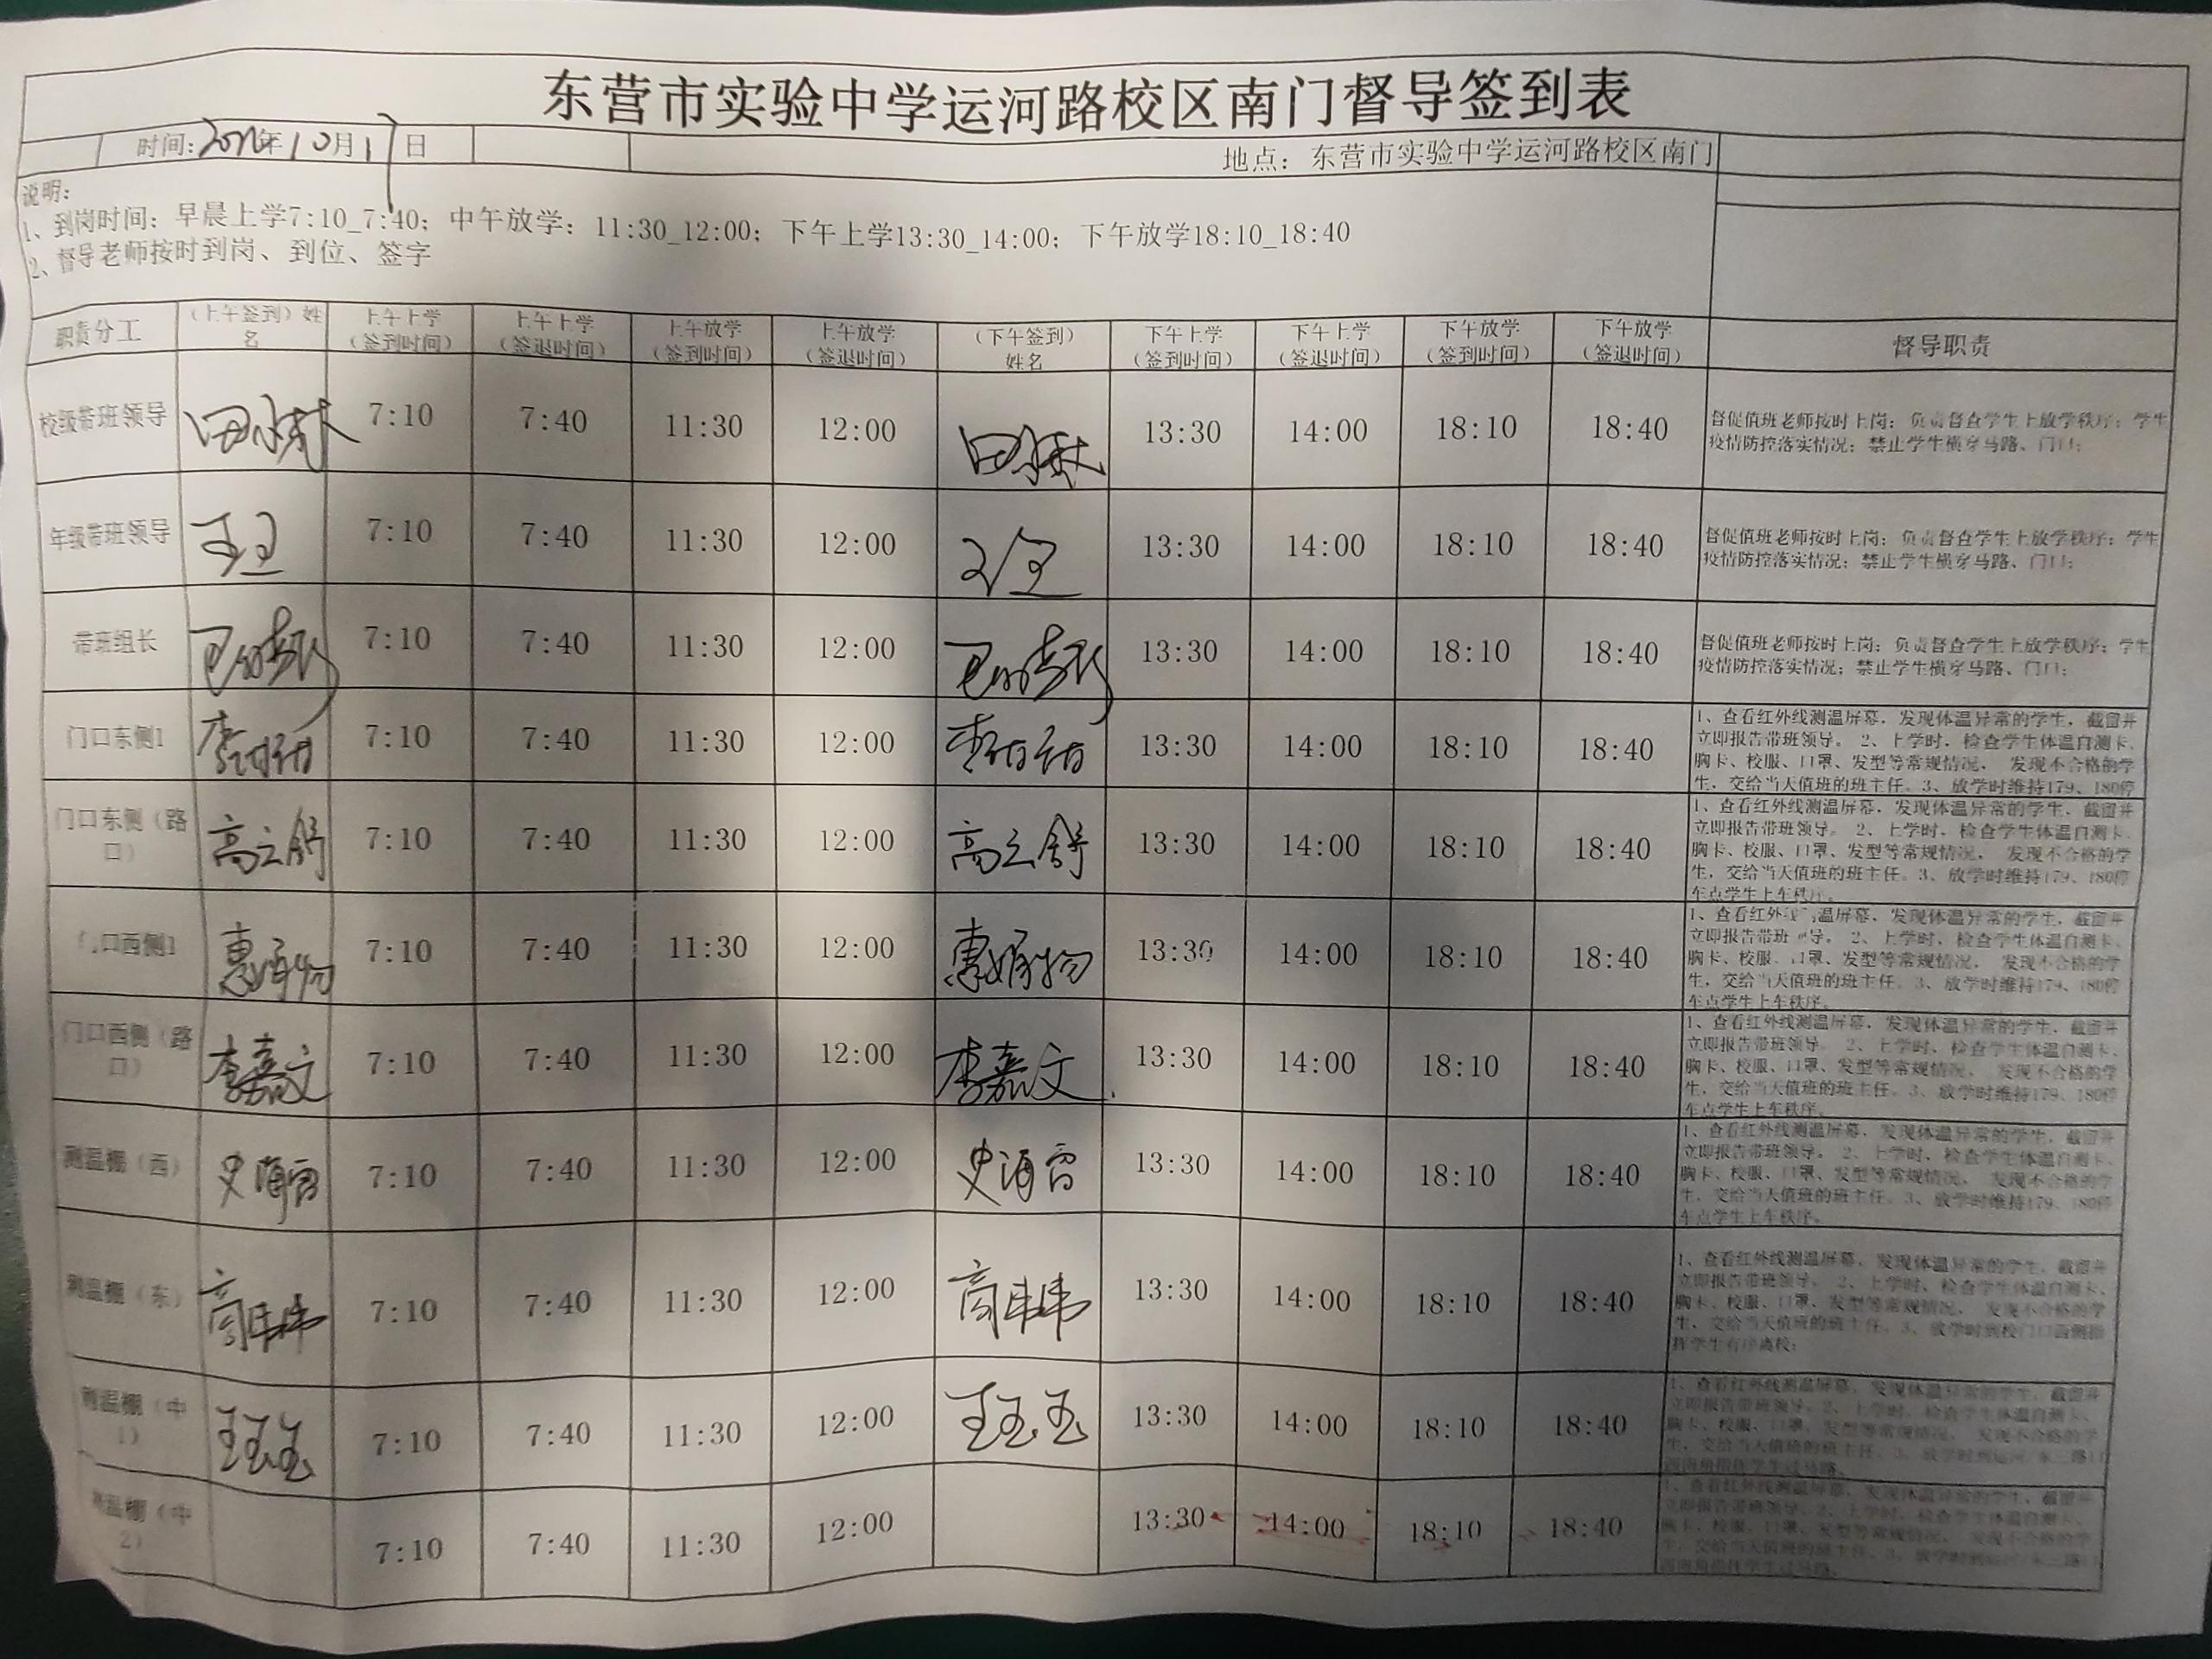 东营市实验中学运河路校区南门督导签到表
时间: 年10月17日
地点：东营市实验中学运河路校区南门
说明：
1、到岗时间：早晨上学7:10_7:40；中午放学：11:30_12:00；下午上学13:30_14:00；下午放学18:10_18:40
2、督导老师按时到岗、到位、签字
职责分工 （上午签到）姓名 上午上学（签到时间） 上午上学（签退时间） 上午放学（签到时间） 上午放学（签退时间） （下午签到）姓名 下午上学（签到时间） 下午上学（签退时间） 下午放学（签到时间） 下午放学（签退时间） 督导职责
校级带班领导 7:10 7:40 11:30 12:00 13:30 14:00 18:10 18:40 督促值班老师按时上岗；负责督查学生上放学秩序；学生
疫情防控落实情况；禁止学生横穿马路、门口；
年级带班领导 7:10 7:40 11:30 12:00 13:30 14:00 18:10 18:40 督促值班老师按时上岗；负责督查学生上放学秩序；学生
疫情防控落实情况；禁止学生横穿马路、门口；
带班组长 7:10 7:40 11:30 12:00 13:30 14:00 18:10 18:40 督促值班老师按时上岗；负责督查学生上放学秩序；学生
疫情防控落实情况；禁止学生横穿马路、门口；
门口东侧1 7:10 7:40 11:30 12:00 13:30 14:00 18:10 18:40 1、查看红外线测温屏幕，发现体温异常的学生，截留并
立即报告带班领导。2、上学时，检查学生体温自测卡、
胸卡、校服、口罩、发型等常规情况， 发现不合格的学
生，交给当天值班的班主任。3、放学时维持179、180停
门口东侧（路口） 高立舒 7:10 7:40 11:30 12:00 高立舒 13:30 14:00 18:10 18:40 1、查看红外线测温屏幕，发现体温异常的学生，截留并
立即报告带班领导。2、上学时，检查学生体温自测卡、
胸卡、校服、口罩、发型等常规情况， 发现不合格的学
生，交给当天值班的班主任。3、放学时维持179、180停
车点学生上车秩序。
口西侧1 7:10 7:40 11:30 12:00 13:30 14:00 18:10 18:40 1、查看红外线温屏幕，发现体温异常的学生，截留并
立即报告带班导。2、上学时，检查学生体温自测卡、
胸卡、校服、口罩、发型等常规情况， 发现不合格的学
生，交给当天值班的班主任。3、放学时维持179、180停
车点学生上车秩序。
门口西侧（路口） 李嘉文 7:10 7:40 11:30 12:00 李嘉文 13:30 14:00 18:10 18:40 1、查看红外线测温屏幕，发现体温异常的学生，截留并
立即报告带班领导。2、上学时，检查学生体温自测卡、
胸卡、校服、口罩、发型等常规情况， 发现不合格的学
生，交给当天值班的班主任。3、放学时维持179、180停
车点学生上车秩序。
测温棚（西） 史海雷 7:10 7:40 11:30 12:00 史海雷 13:30 14:00 18:10 18:40 1、查看红外线测温屏幕，发现体温异常的学生，截留并
立即报告带班领导。2、上学时，检查学生体温自测卡、
胸卡、校服、口罩、发型等常规情况， 发现不合格的学
生，交给当天值班的班主任。3、放学时维持179、180停
车点学生上车秩序。
测温棚（东） 7:10 7:40 11:30 12:00 13:30 14:00 18:10 18:40 1、查看红外线测温屏幕，发现体温异常的学生，截留并
立即报告带班领导。2、上学时，检查学生体温自测卡、
胸卡、校服、口罩、发型等常规情况， 发现不合格的学
生，交给当天值班的班主任。3、放学时到校门口西侧指
挥学生有序离校；
测温棚（中1） 王玉玉 7:10 7:40 11:30 12:00 王玉玉 13:30 14:00 18:10 18:40 1、查看红外线测温屏幕，发现体温异常的学生，截留并
立即报告带班领导。2、上学时，检查学生体温自测卡、
胸卡、校服、口罩、发型等常规情况， 发现不合格的学
生，交给当天值班的班主任。3、放学时到运河
西南角指挥学生过马路。
测温棚（中2） 7:10 7:40 11:30 12:00 13:30 14:00 18:10 18:40 1、查看红外线测温屏幕，发现体温异常的学生，截留并
立即报告带班领导。2、上学时，检查学生体温自测卡、
胸卡、校服、口罩、发型等常规情况， 发现不合格的学
生，交给当天值班的班主任。3、放学时到运河
西南角指挥学生过马路。